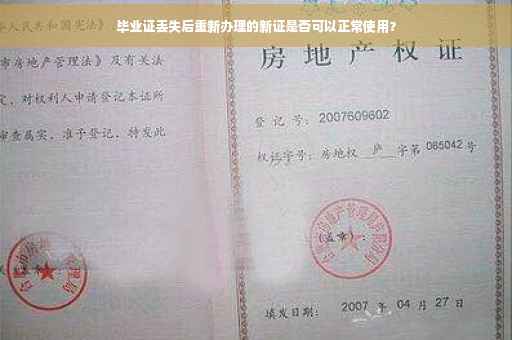 毕业证丢失后重新办理的新证是否可以正常使用？
人民共和国宪法》
市房地产管理法》及有关
定，对权利人申请登记本证所
审查属实，准予登记，特发此
房地产权证
登记号：2007609602
权证字号：房地权 庐 字第 085042 号
(盖章)：
填发日期： 2007 年 04 月 27 日